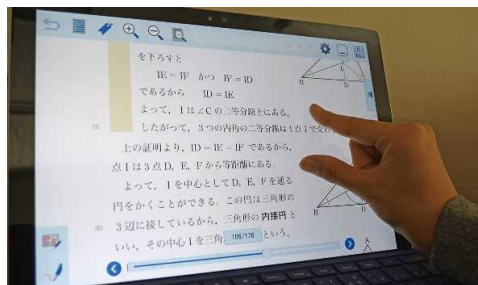 を下ろすと
IE = IF かつ IF = ID
であるから ID = IE
よって，I は∠C の二等分線上にある。
15 したがって，3つの内角の二等分線は1点Iで交わ
上の証明より，ID = IE = IF であるから，
点Iは3点D，E，Fから等距離にある。
よって，Iを中心としてD，E，Fを通る
円をかくことができる。この円は三角形の
20 3辺に接しているから，三角形の内接円と
いい，その中心Iを三角 という。
106/178
I
B
D
B
D
A